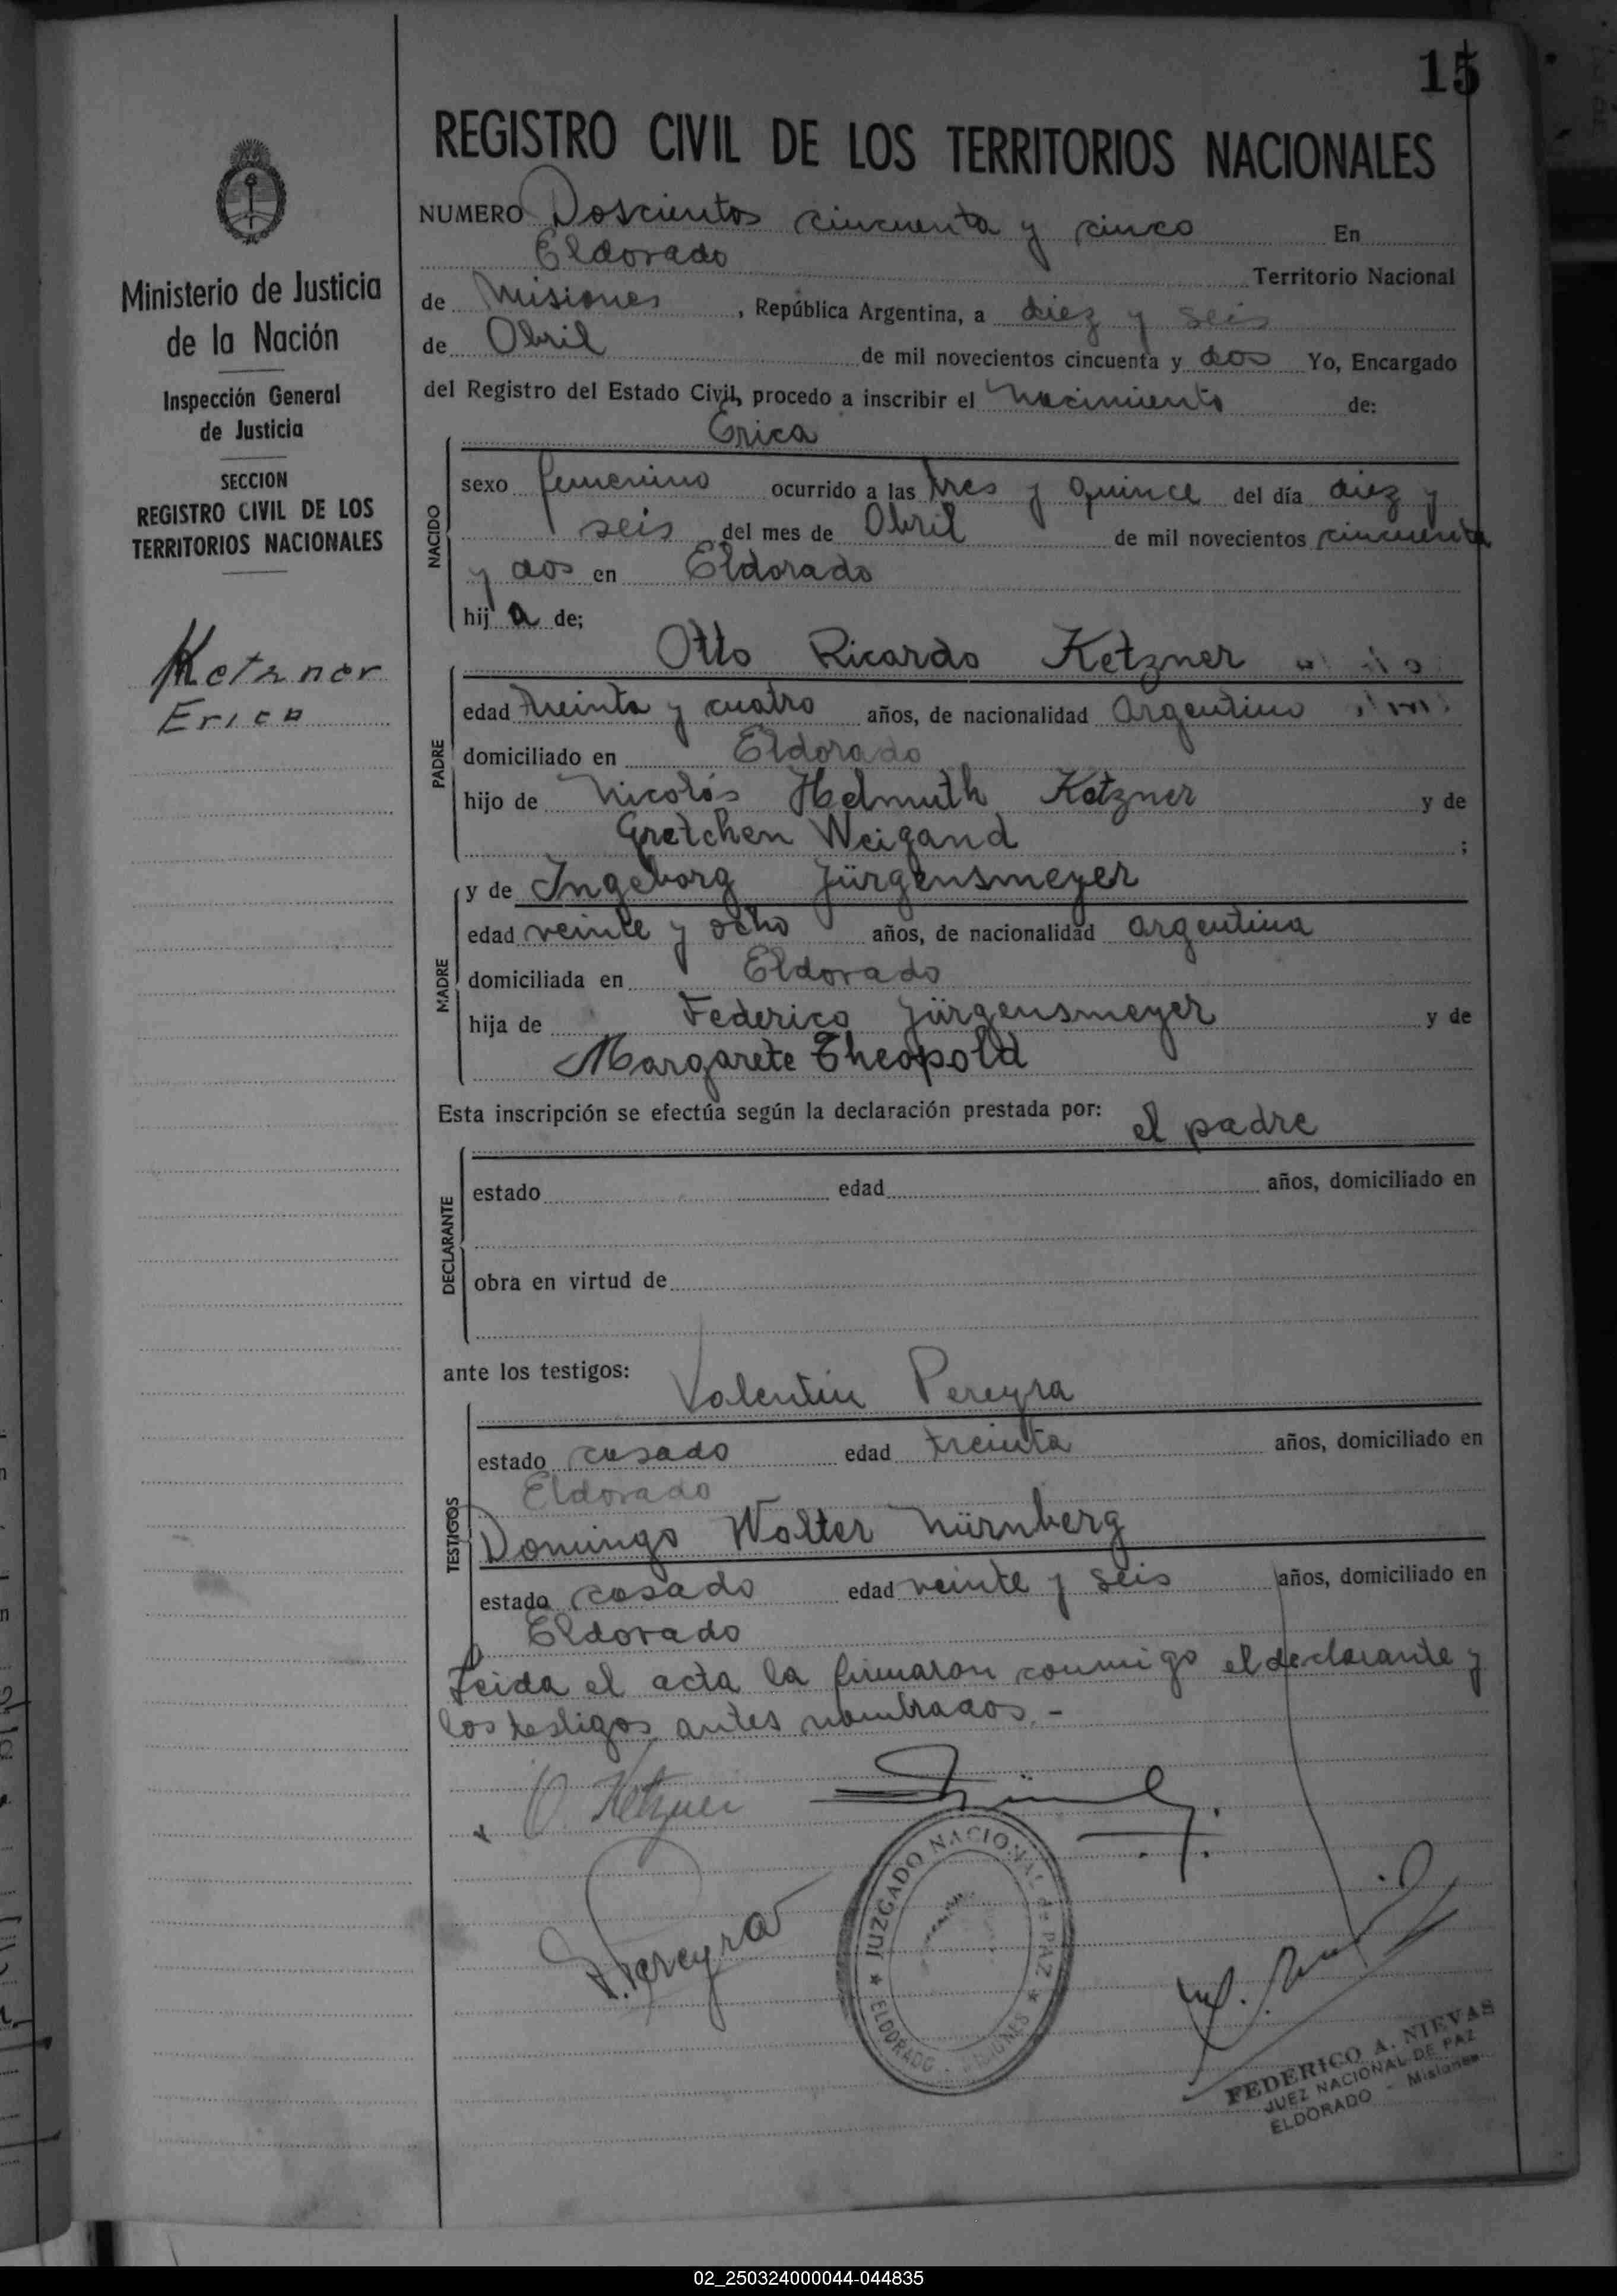 15
REGISTRO CIVIL DE LOS TERRITORIOS NACIONALES
Ministerio de Justicia
de la Nación
Inspección General
de Justicia
SECCION
REGISTRO CIVIL DE LOS
TERRITORIOS NACIONALES
Ketzner
Erica
NUMERO Doscientos cincuenta y cinco En
Eldorado Territorio Nacional
de Misiones, República Argentina, a diez y seis
de Abril de mil novecientos cincuenta y dos Yo, Encargado
del Registro del Estado Civil, procedo a inscribir el nacimiento de:
NACIDO
Erica
sexo femenino ocurrido a las tres y quince del día diez y
seis del mes de Abril de mil novecientos cincuenta
y dos en Eldorado
hija de;
PADRE
Otto Ricardo Ketzner
edad treinta y cuatro años, de nacionalidad Argentino
domiciliado en Eldorado
hijo de Nicolás Helmuth Ketzner y de
Gretchen Weigand ;
MADRE
y de Ingeborg Jürgensmeyer
edad veinte y ocho años, de nacionalidad argentina
domiciliada en Eldorado
hija de Federico Jürgensmeyer y de
Margarete Theopold
Esta inscripción se efectúa según la declaración prestada por: el padre
DECLARANTE
estado edad años, domiciliado en
obra en virtud de
ante los testigos: Valentin Pereyra
TESTIGOS
estado casado edad treinta años, domiciliado en
Eldorado
Domingo Walter Nürnberg
estado casado edad veinte y seis años, domiciliado en
Eldorado
Leida el acta la firmaron conmigo el declarante y
los testigos antes nombrados.-
O. Ketzner
V. Pereyra
JUZGADO NACIONAL de PAZ
ELDORADO - MISIONES
FEDERICO A. NIEVAS
JUEZ NACIONAL DE PAZ
ELDORADO - Misiones
02_250324000044-044835